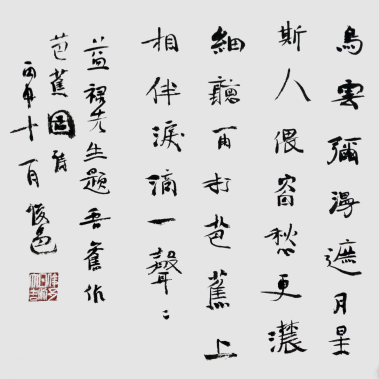 烏雲彌漫遮月星
斯人偎窗愁更濃
細聽雨打芭蕉上
相伴淚滴一聲〻
益禄先生題吾舊作
芭蕉圖詩
丙申十一月俊邑